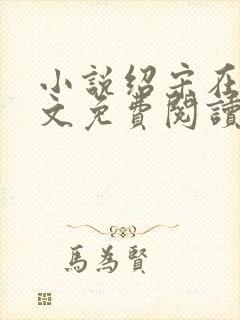 小說紹宋在
文免費閱讀
馬為賢